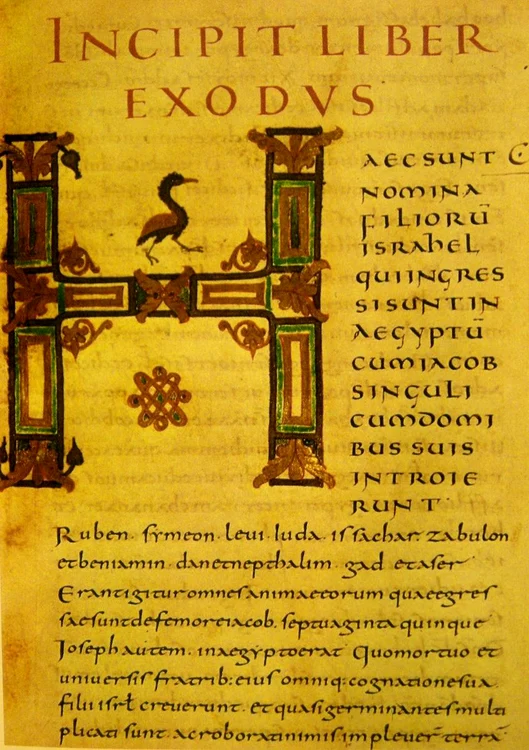 INCIPIT LIBER
EXODVS
HAEC SUNT
NOMINA
FILIORŪ
ISRAHEL
QUI INGRES
SI SUNT IN
AEGYPTŪ
CUM IACOB
SINGULI
CUM DOMI
BUS SUIS
INTROIE
RUNT·
Ruben· symeon· leui· Iuda· issachar· zabulon
et beniamin· dan et nepthalim· gad et aser
Erant igitur omnes animae eorum quae egres
sae sunt de femore iacob· septuaginta quinque
Ioseph autem· in aegypto erat· Quo mortuo et
uniuersis fratrib: eius omniq: cognatione sua·
filii isrł creuerunt· et quasi germinantes multi
plicati sunt· ac roborati nimis impleuer̄ terrā